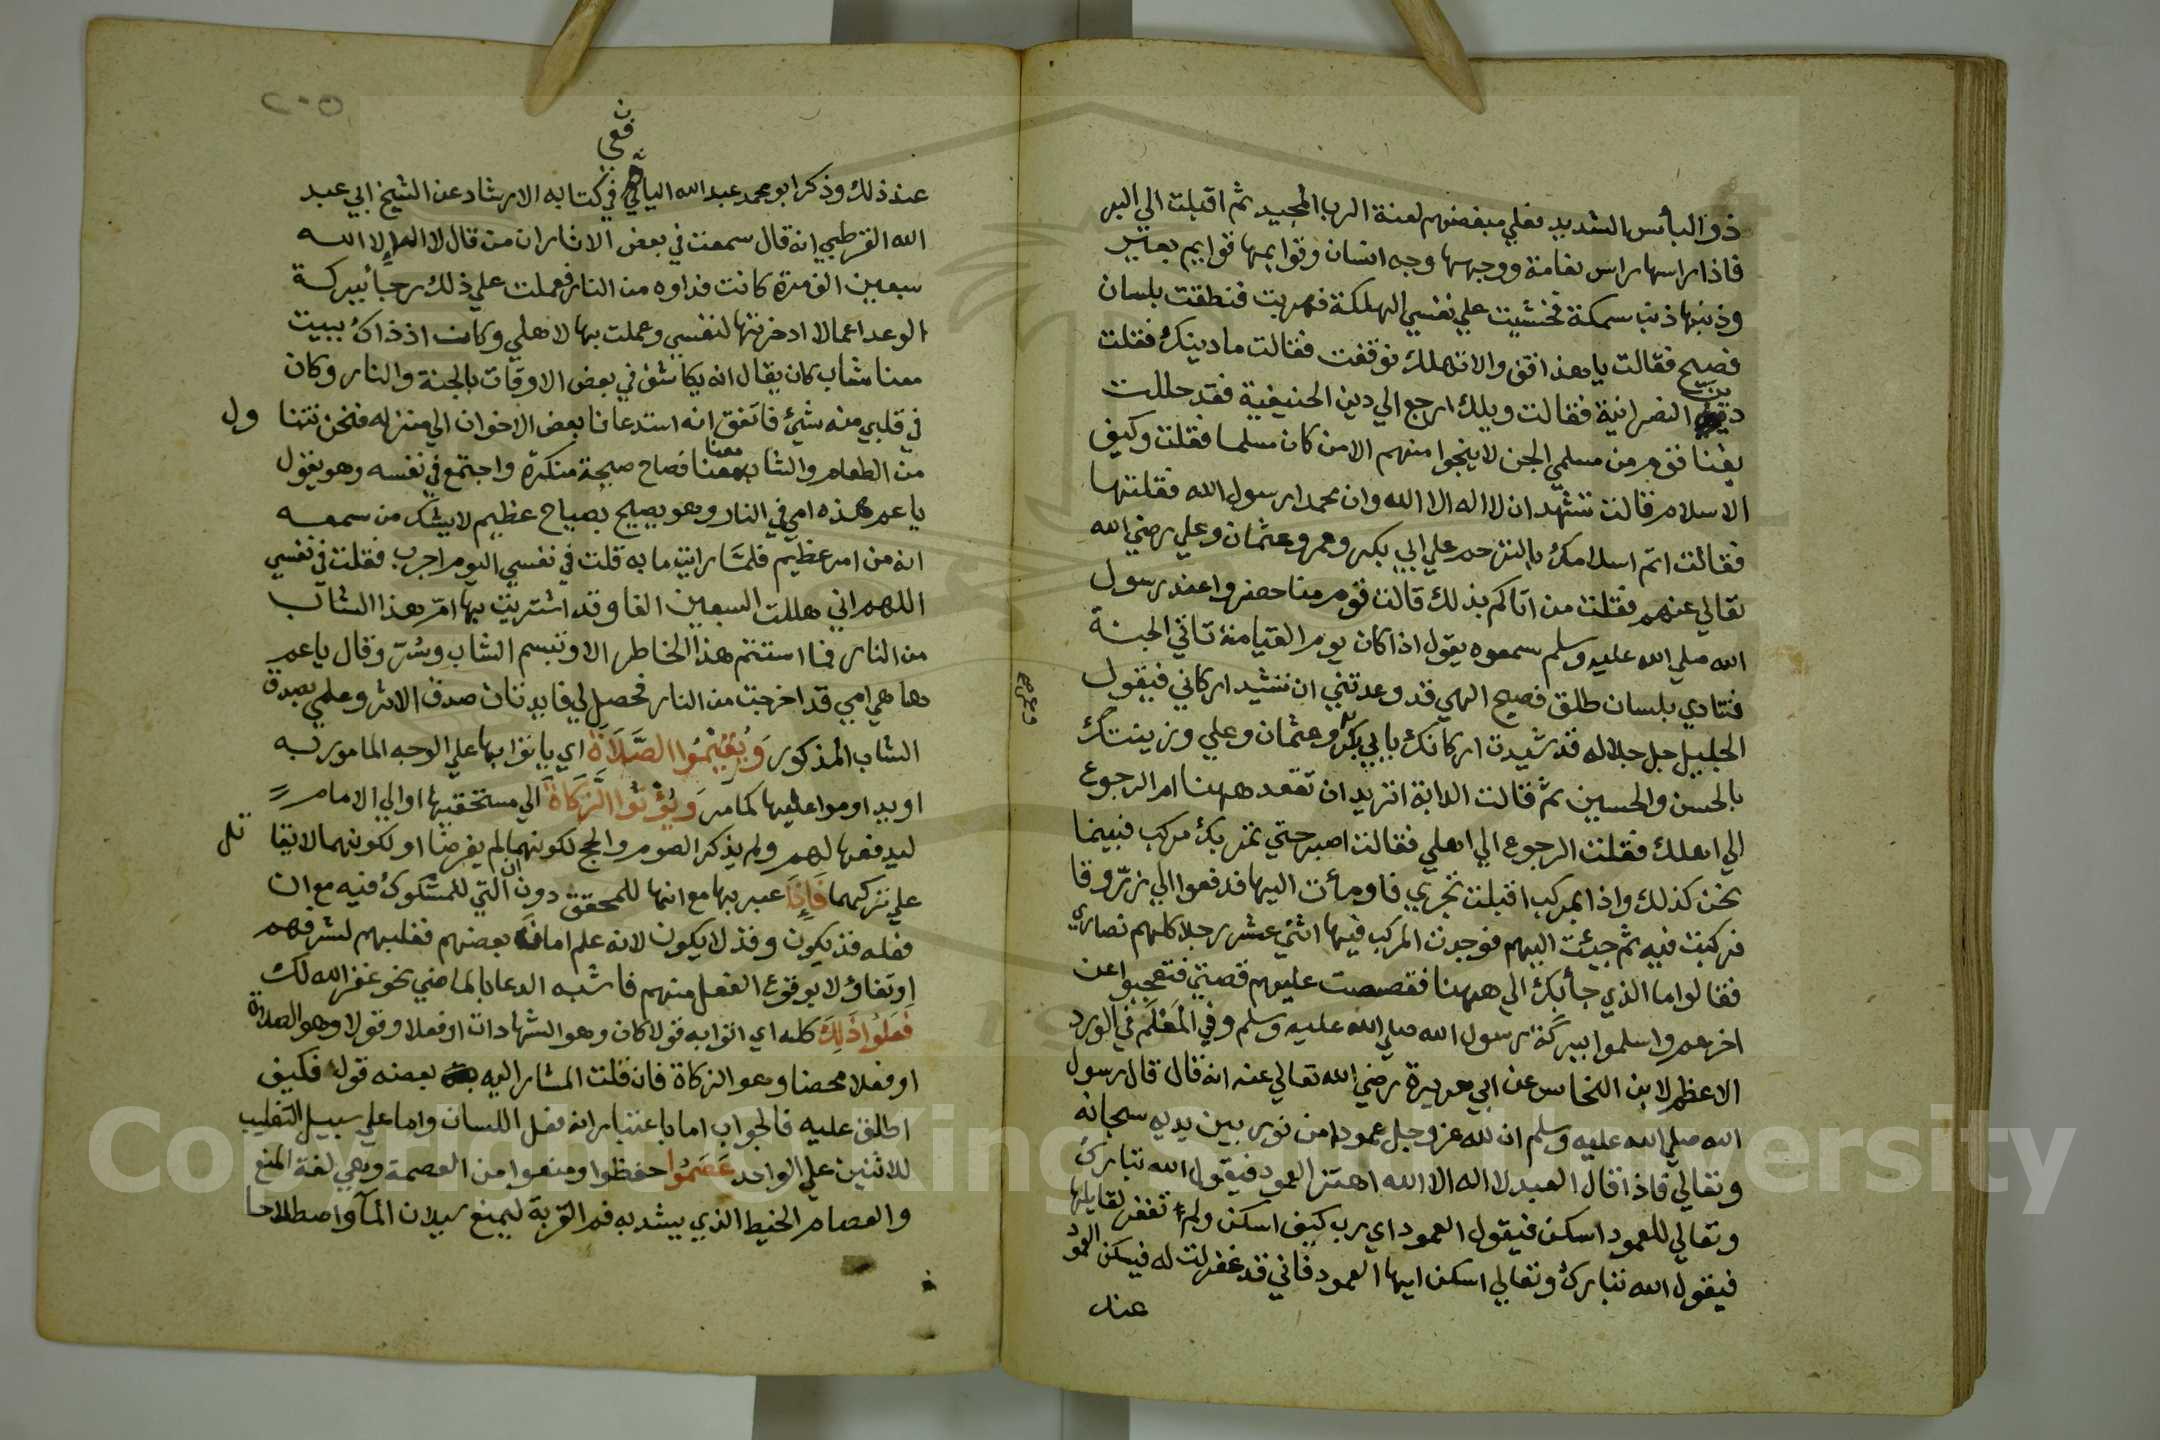 ذو البأس الشديد فعلي مبغضهم لعنة الرب المجيد ثم اقبلت الي البر
فاذا راسها راس نعامة ووجهها وجه انسان وقوايمها قوايم بعير
وذنبها ذنب سمكة فخشيت علي نفسي الهلكة فهربت فنطقت بلسان
فصيح فقالت يا هذا قف والا تهلك فوقفت فقالت ما دينك فقلت
دين النصرانية فقالت ويلك ارجع الي دين الحنيفية فقد حللت
بفنا قوم من مسلمي الجن لا ينجوا منهم الا من كان مسلما فقلت وكيف
الاسلام قالت تشهد ان لا اله الا الله وان محمدا رسول الله فقلتها
فقالت اتم اسلامك بالترحم علي ابي بكر وعمر وعثمان وعلي رضي الله
تعالي عنهم فقلت من اتاكم بذلك قالت قوم منا حضروا عند رسول
الله صلي الله عليه وسلم سمعوه يقول اذا كان يوم القيامة تاتي الجنة
فتنادي بلسان طلق فصيح الهي قد وعدتني ان تشيد اركاني فيقول
الجليل جل جلاله قد شيدت اركانك بابي بكر وعثمان وعلي وزينتك
وعمر صح
بالحسن والحسين ثم قالت الدابة اتريد ان تقعد ههنا ام الرجوع
الي اهلك فقلت الرجوع الي اهلي فقالت اصبر حتي تمر بك مركب فبينما
نحن كذلك واذا بمركب اقبلت تجري فاومأت اليها فدفعوا الي زروقا
فركبت فيه ثم جيئت اليهم فوجدت المركب فيها اثني عشر رجلا كلهم نصاري
فقالوا ما الذي جأبك الي ههنا فقصصت عليهم قصتي فتعجبوا عن
اخرهم واسلموا ببركة رسول الله صلي الله عليه وسلم وفي المعلم في الورد
الاعظم لابن النحاس عن ابي هريرة رضي الله تعالي عنه انه قال قال رسول
الله صلي الله عليه وسلم ان لله عز وجل عمودا من نور بين يديه سبحانه
وتعالي فاذا قال العبد لا اله الا الله اهتز العمود فيقول الله تبارك
وتعالي للعمود اسكن فيقول العمود اي رب كيف اسكن ولم تغفر لقايلها
فيقول الله تبارك وتعالي اسكن ايها العمود فاني قد غفرت له فيسكن العمود
عند
٢٠٥
عند ذلك وذكر ابو محمد عبد الله اليافعي في كتابه الارشاد عن الشيخ ابي عبد
الله القرطبي انه قال سمعت في بعض الاثار ان من قال لا اله الا الله
سبعين الف مرة كانت فداوه من النار فعملت علي ذلك رجأ ببركة
الوعد اعمالا ادخرتها لنفسي وعملت بها لاهلي وكان اذ ذاك يبيت
معنا شاب كان يقال انه يكاشف في بعض الاوقات بالجنة والنار وكان
في قلبي منه شيئ فاتفق انه استدعانا بعض الاخوان الي منزله فنحن نتنا ول
من الطعام والشاب معنا فصاح صيحة منكرة واجتمع في نفسه وهو يقول
يا عم هذه امي في النار وهو يصيح بصياح عظيم لا يشك من سمعه
انه من امر عظيم فلما رايت ما به قلت في نفسي اليوم اجرب فقلت في نفسي
اللهم اني هللت السبعين الفا وقد اشتريت بها ام هذا الشاب
من النار فما استتم هذا الخاطر الا وتبسم الشاب وسر وقال يا عم
ها هي امي قد اخرجت من النار فحصل لي فايدتان صدق الاثر وعلمي بصدق
الشاب المذكور وَيُقِيمُوا الصَّلَاةَ اي ياتوا بها علي الوجه المامور به
او يداوموا عليها كما مر وَيُؤْتُوا الزَّكَاةَ الي مستحقيها او الي الامام
ليدفعها لهم ولم يذكر الصوم والحج لكونهما لم يفرضا او لكونهما لا يقا تل
علي تركهما فَاِذَا عبر بها مع انها للمحقق دون ان التي للمشكوك فيه مع ان
فعله قد يكون وقد لا يكون لانه علم اصابة بعضهم فغلبهم لشرفهم
او تفاؤلا بوقوع الفعل منهم فاشبه الدعا بالماضي نحو غفر الله لك
فَعَلُوا ذَلِكَ كله اي اتوا به قولا كان وهو الشهادات او فعلا وقولا وهو الصلاة
او فعلا محضا وهو الزكاة فان قلت المشار اليه بعضه قول فكيف
اطلق عليه فالجواب اما باعتبار انه فعل اللسان واما علي سبيل التغليب
للاثنين علي الواحد عَصَمُوا حفظوا ومنعوا من العصمة وهي لغة المنع
والعصام الخيط الذي يشد به فم القربة ليمنع سيلان المآ واصطلاحا
Copyright © King Saud University